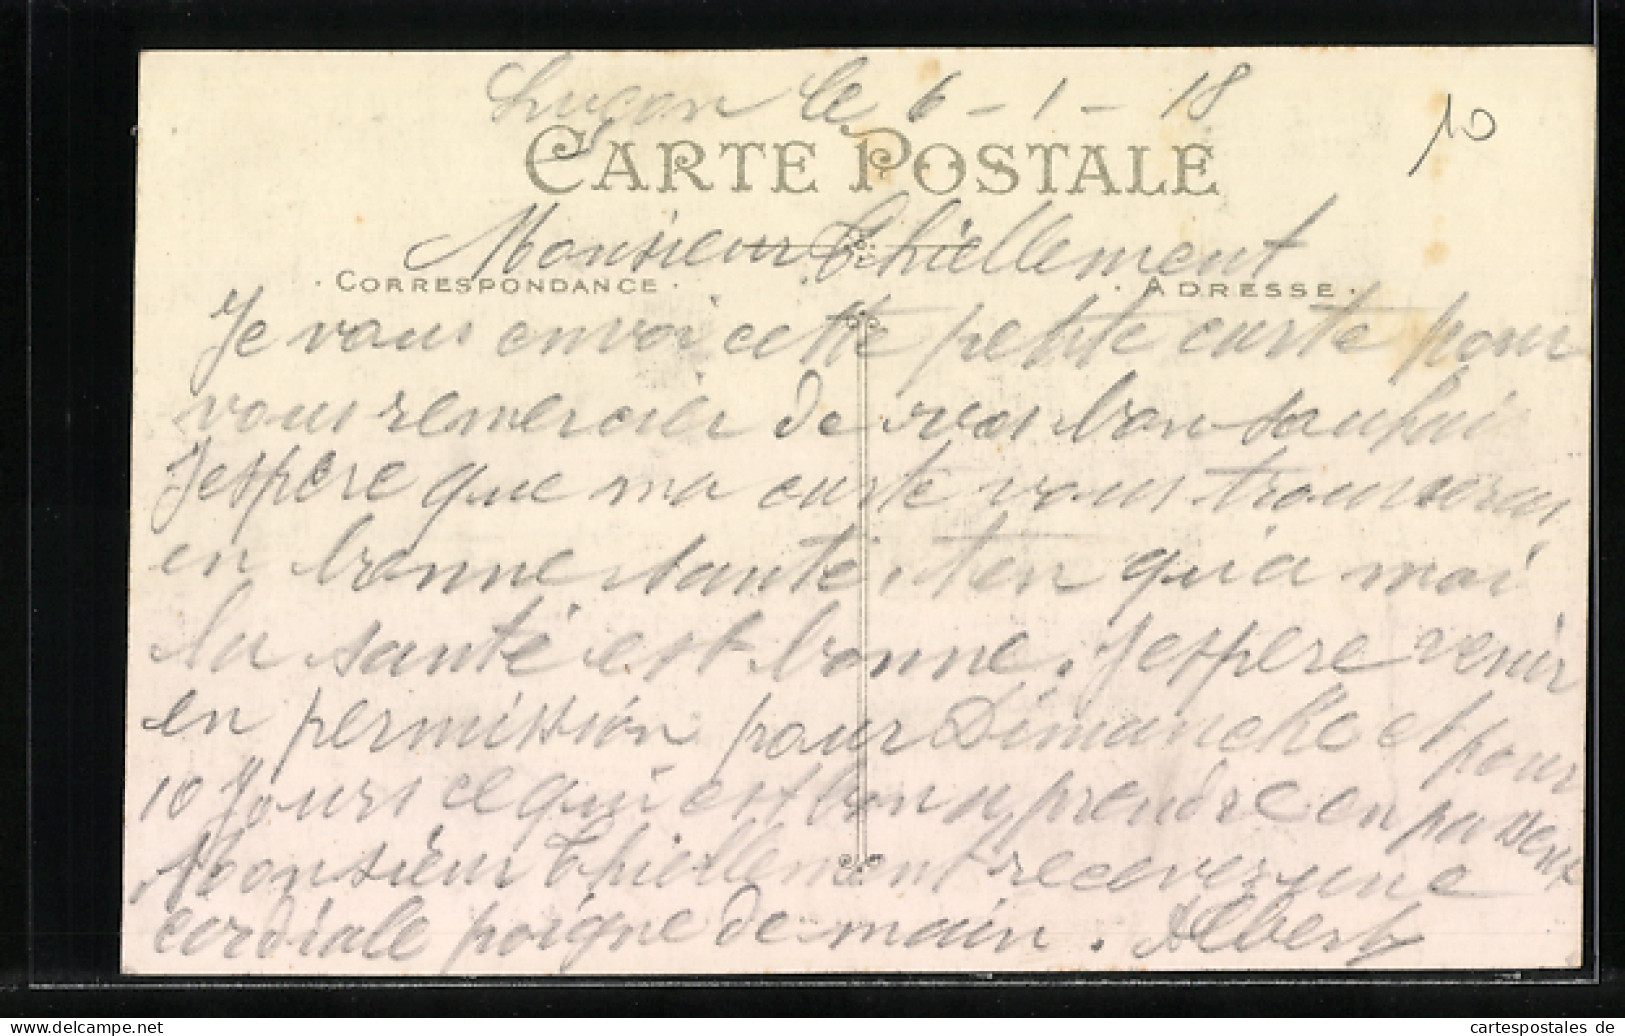 Luçon le 6-1-18
10
CARTE POSTALE
Monsieur Thiellement
· CORRESPONDANCE · · ADRESSE ·
Je vous envoi cette petite carte pour
vous remercier de vos bon souhai
J'espère que ma carte vous trouveras
en bonne santé, ten qu'a moi
la santé est bonne. J'espère venir
en permission pour Dimanche et pour
10 Jours ce qui est bon a prendre en
Monsieur Thiellement recever une
cordiale poigne de main. Albert
cartespostales de